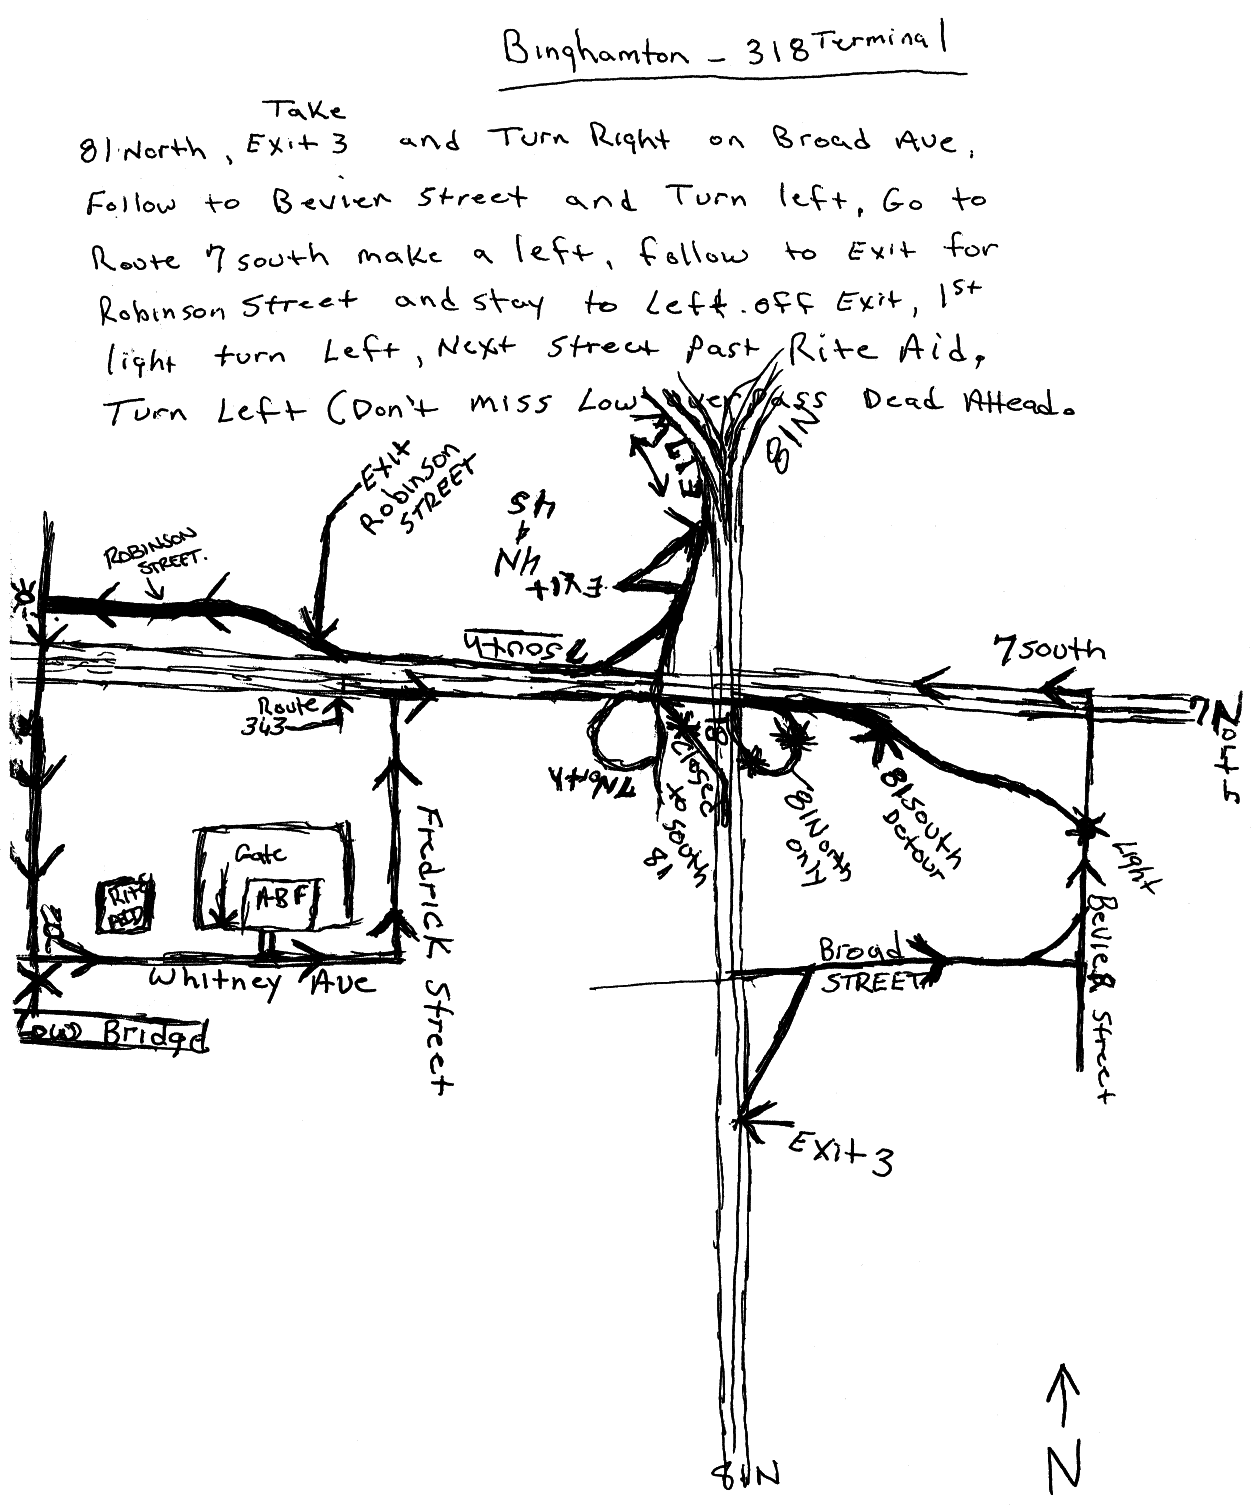 Binghamton - 318 Terminal
Take
81 North, Exit 3 and Turn Right on Broad Ave,
Follow to Bevier Street and Turn left, Go to
Route 7 south make a left, follow to Exit for
Robinson Street and stay to Left off Exit, 1st
light turn Left, Next Street Past Rite Aid,
Turn Left (Don't miss Low overpass Dead AHead.
81N
17E
4S
4
4N
Exit
Exit
Robinson
STREET
ROBINSON
STREET.
7South
7 South
7North
Route
343
7North
81
Closed
to South
81
81North
only
81South
Detour
Light
Fredrick Street
Gate
ABF
Rite
AID
Whitney Ave
Low Bridge
Broad
STREET
Bevier Street
Exit 3
81N
N